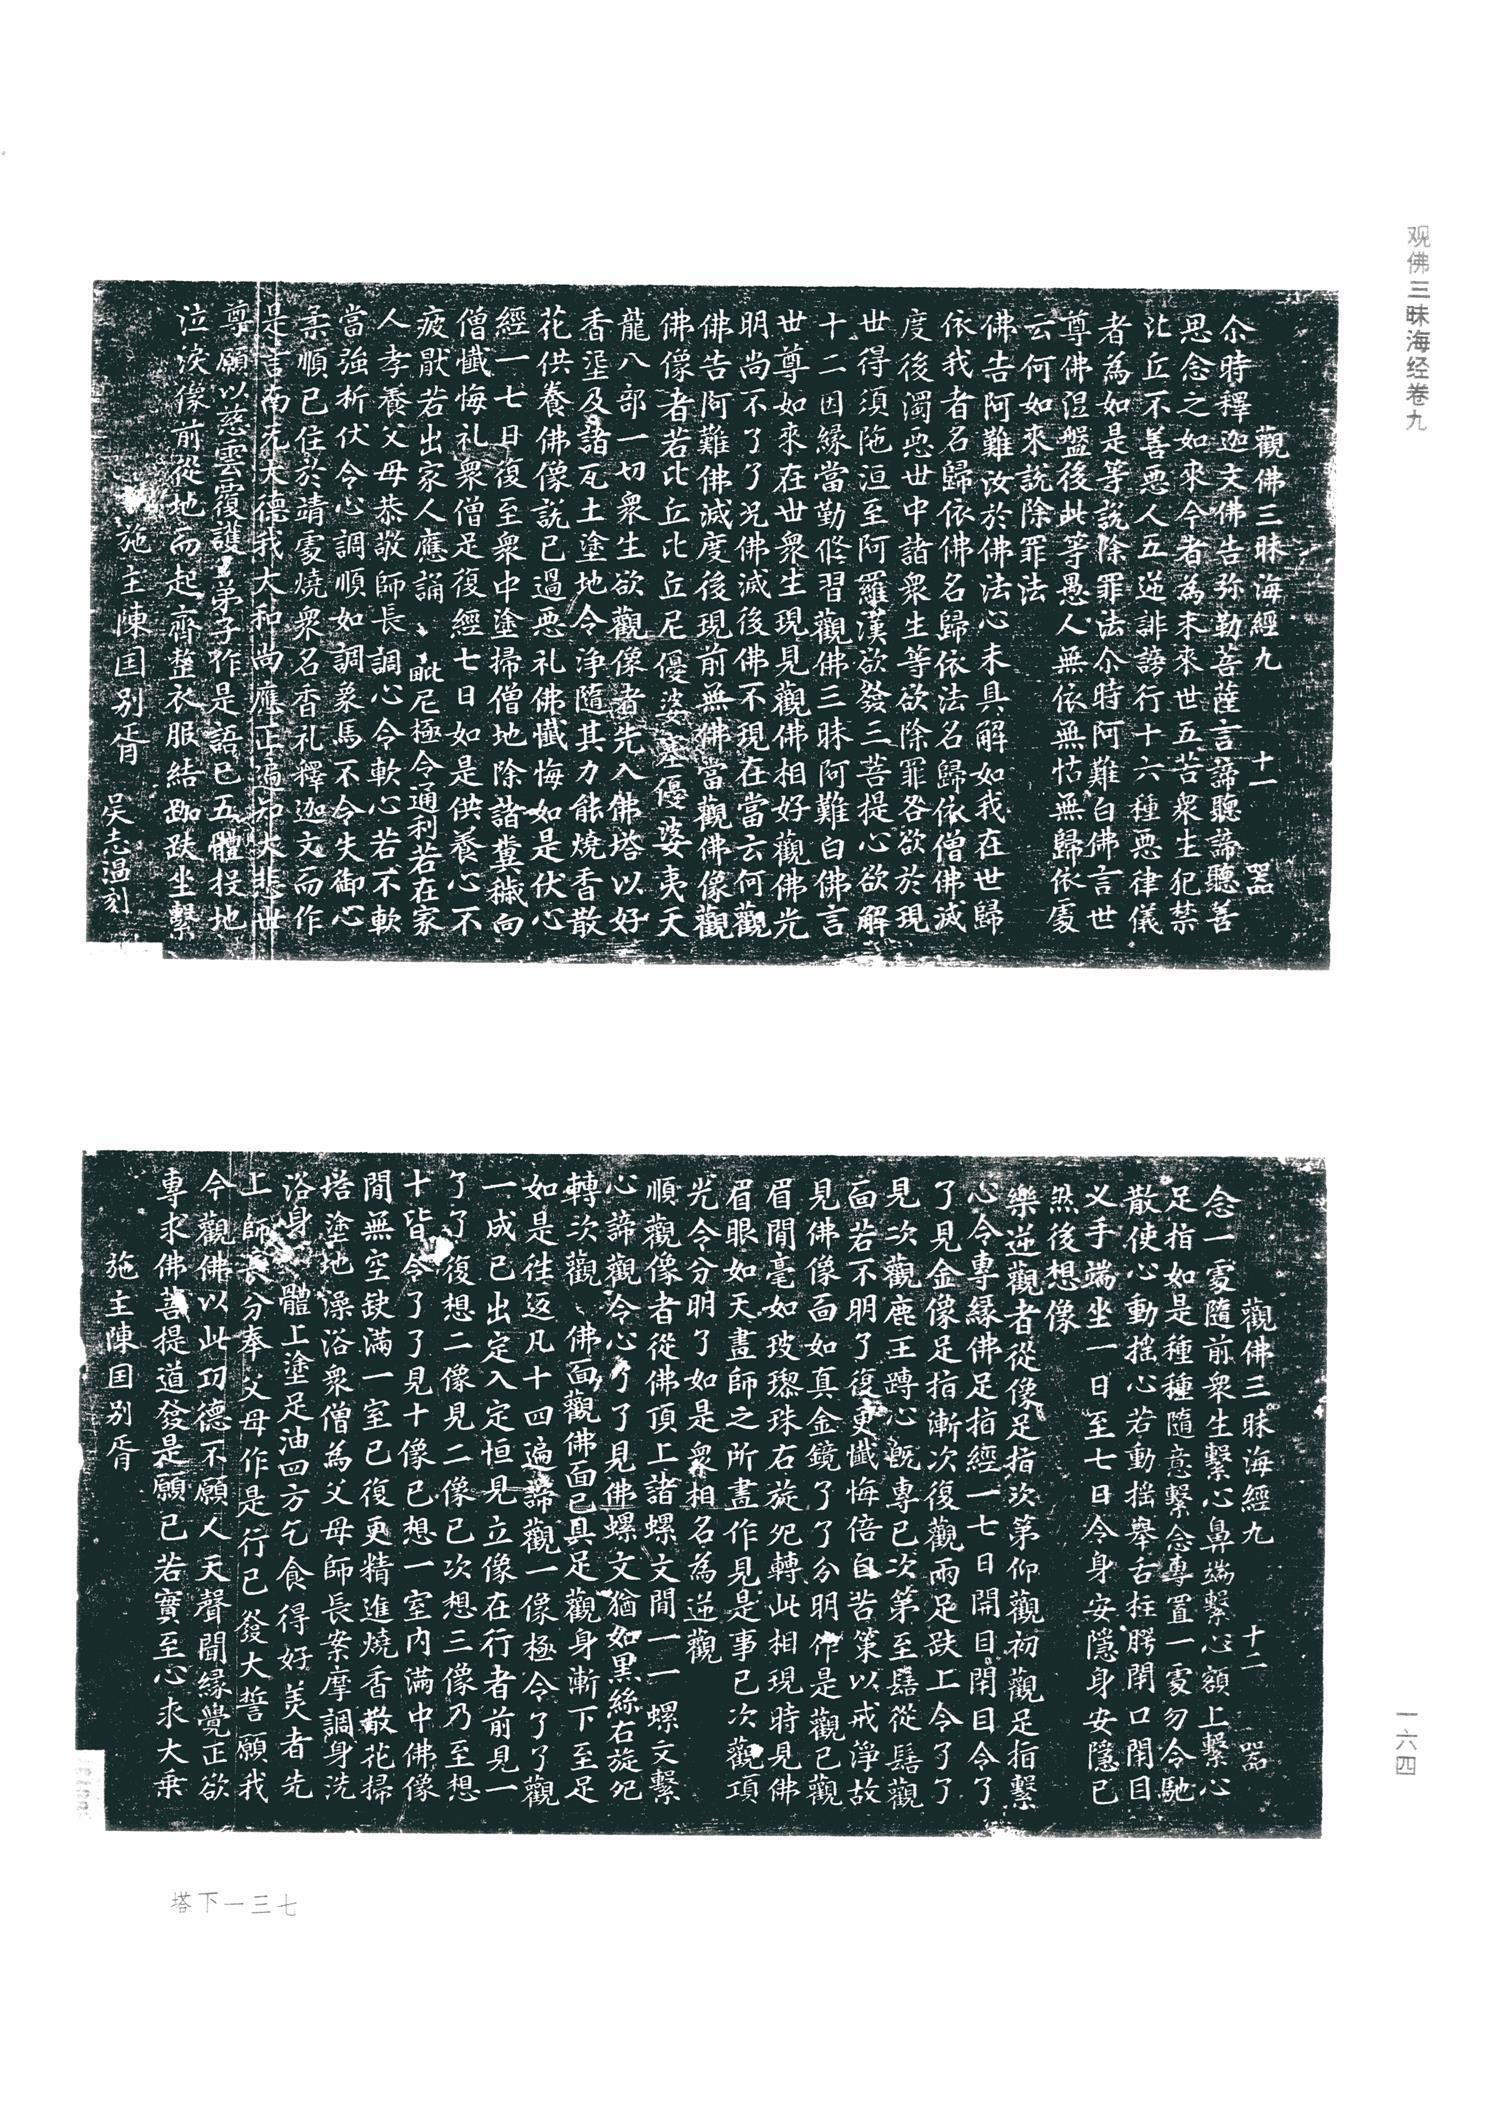 观佛三昧海经卷九
觀佛三昧海經九 十一 器
尒時釋迦文佛告弥勒菩薩言諦聽諦聽善
思念之如來今者為未來世五苦衆生犯禁
比丘不善惡人五逆誹謗行十六種惡律儀
者為如是等說除罪法尒時阿難白佛言世
尊佛涅盤後此等愚人無依無怙無歸依處
云何如來說除罪法
佛告阿難汝於佛法心未具解如我在世歸
依我者名歸依佛名歸依法名歸依僧佛滅
度後濁惡世中諸衆生等欲除罪各欲於現
世得須陁洹至阿羅漢欲發三菩提心欲解
十二因緣當勤修習觀佛三昧阿難白佛言
世尊如來在世衆生現見觀佛相好觀佛光
明尚不了了况佛滅後佛不現在當云何觀
佛告阿難佛滅度後現前無佛當觀佛像觀
佛像者若比丘比丘尼優婆塞優婆夷天
龍八部一切衆生欲觀像者先入佛塔以好
香埿及諸瓦土塗地令淨隨其力能燒香散
花供養佛像說已過惡礼佛懺悔如是伏心
經一七日復至衆中塗掃僧地除諸糞穢向
僧懺悔礼衆僧足復經七日如是供養心不
疲厭若出家人應誦毗尼極令通利若在家
人孝養父母恭敬師長調心令軟心若不軟
當強折伏令心調順如調象馬不令失御心
柔順已住於靖處燒衆名香礼釋迦文而作
是言南无大德我大和尚應正遍知大悲世
尊願以慈雲覆護弟子作是語已五體投地
泣淚像前從地而起齊整衣服結跏趺坐繫
施主陳国别胥 吴志温刻
觀佛三昧海經九 十二 器
念一處隨前衆生繫心鼻端繫心額上繫心
足指如是種種隨意繫念專置一處勿令馳
散使心動搖心若動搖舉舌拄腭閉口閉目
义手端坐一日至七日令身安隱身安隱已
然後想像
樂逆觀者從像足指次第仰觀初觀足指繫
心令專緣佛足指經一七日開目閉目令了
了見金像足指漸次復觀兩足趺上令了了
見次觀鹿王蹲心旣專已次第至髻從髻觀
面若不明了復更懺悔倍自苦策以戒淨故
見佛像面如真金鏡了了分明作是觀已觀
眉間毫如玻瓈珠右旋宛轉此相現時見佛
眉眼如天畫師之所畫作見是事已次觀項
光令分明了如是衆相名為逆觀
順觀像者從佛頂上諸螺文間一一螺文繫
心諦觀令心了了見佛螺文猶如黑絲右旋宛
轉次觀佛面觀佛面已具足觀身漸下至足
如是往返凡十四遍諦觀一像極令了了觀
一成已出定入定恒見立像在行者前見一
了了復想二像見二像已次想三像乃至想
十皆令了了見十像已想一室内滿中佛像
閒無空缺滿一室已復更精進燒香散花掃
塔塗地澡浴衆僧為父母師長案摩調身洗
浴身體上塗足油四方乞食得好美者先
上師長分奉父母作是行已發大誓願我
今觀佛以此功德不願人天聲聞緣覺正欲
專求佛菩提道發是願已若實至心求大乘
施主陳国别胥
一六四
塔下一三七